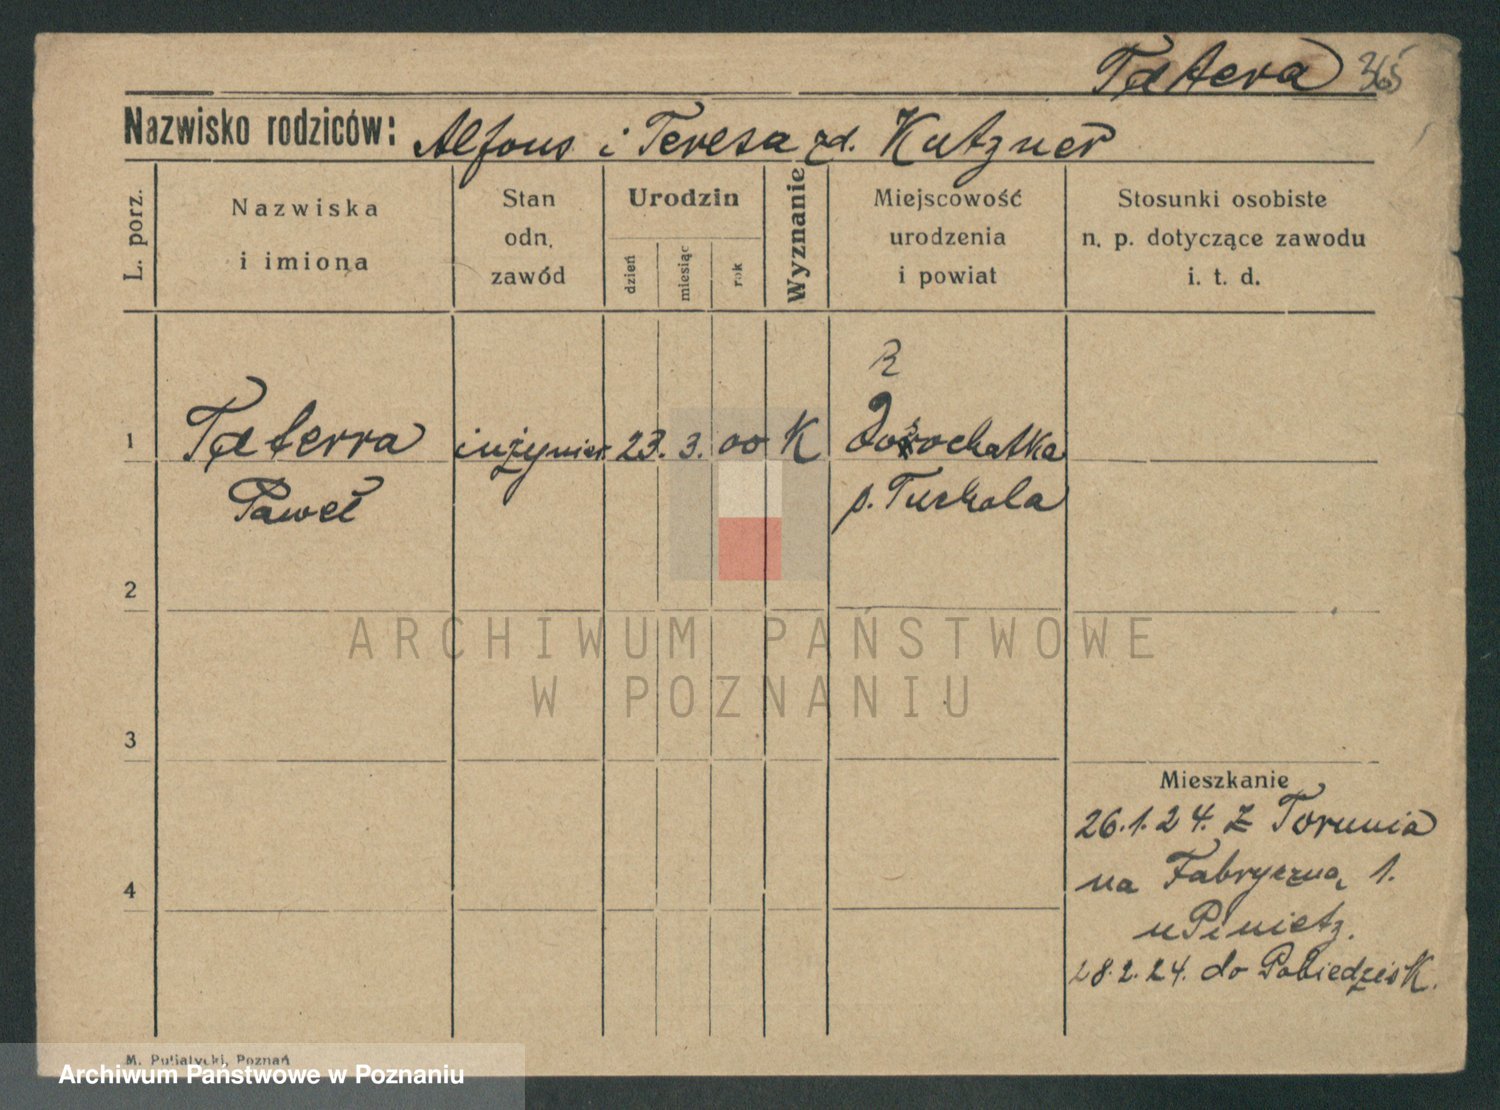 Tatera 365
Nazwisko rodziców: Alfons i Teresa zd. Kutzner
L. porz.
Nazwiska
i imiona
Stan
odn.
zawód
Urodzin
dzień
miesiąc
rok
Wyznanie
Miejscowość
urodzenia
i powiat
Stosunki osobiste
n. p. dotyczące zawodu
i. t. d.
1 Taterra inżynier 23. 3. 00 K
Paweł p. Tuchola
2
3
4
ARCHIWUM PAŃSTWOWE
W POZNANIU
Mieszkanie
26.1.24. z Torunia
na Fabryczną 1.
28.2.24. do Pobiedzisk.
M. Putiatycki, Poznań
Archiwum Państwowe w Poznaniu